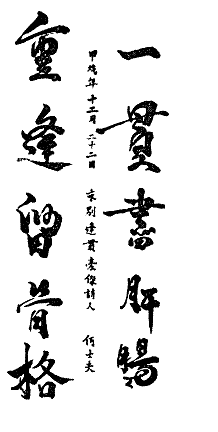 一貫書肝腸
甲戌年十二月二十二日 末別逢貫豪傑詩人 何士夫
重逢留骨格